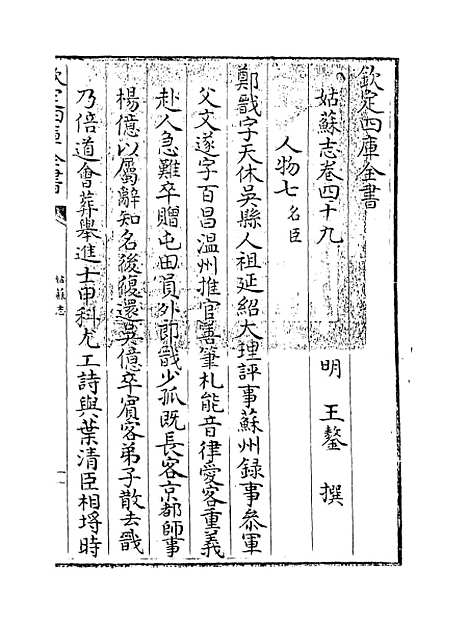 欽定四庫全書
姑蘇志卷四十九
明 王鏊 撰
人物七名臣
鄭戩字天休吳縣人祖延紹大理評事蘇州録事叅軍
父文遂字百昌温州推官善筆札能音律愛客重義
赴人急難卒贈屯田員外郎戩少孤既長客京都師事
楊億以屬辭知名後復還吳億卒賓客弟子散去戩
乃倍道會葬舉進士甲科尤工詩與葉清臣相埒時
欽定四庫全書
姑蘇志